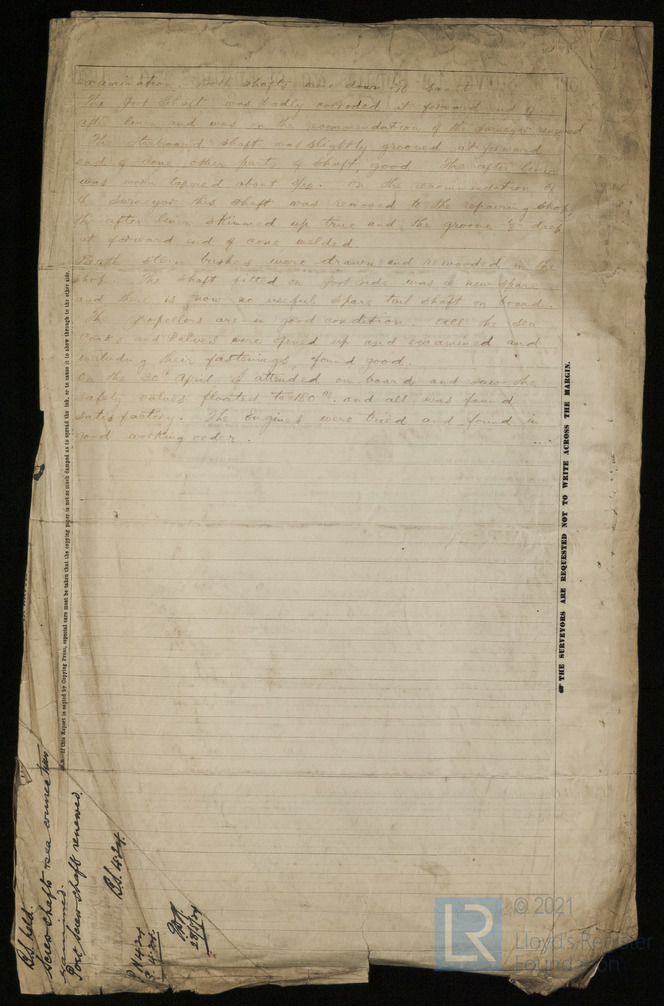 examination. Both shafts were down
The Port shaft was badly corroded at forward end of
after liner and was on the recommendation of the Surveyor renewed
The starboard shaft was slightly grooved at forward
end of cone, other parts of shaft, good. The after liner
was worn tapered about On the recommendation of
the Surveyor this shaft was removed to the repairing shop,
the after liner skimmed up true and the groove deep
at forward end of cone welded.
Both stern bushes were drawn and rewooded in the
shop. The shaft fitted on port side was a new spare
and there is now no useful spare tail shaft on board.
The propellors are in good condition. All the sea
cocks and valves were opened up and examined and
including their fastenings, found good.
On the 30th April I attended on board and saw the
safety valves floated to 180 and all was found
satisfactory. The Engines were tried and found in
good working order.
☞ THE SURVEYORS ARE REQUESTED NOT TO WRITE ACROSS THE MARGIN.
If this Report is copied by Copying Press, especial care must be taken that the copying paper is not so much damped as to spread the ink, or to cause it to show through to the other side.
B.S. held
Screw shafts & sea connections
examined.
Port screw shaft renewed.
B.S. 4.24
4.24
© 2021
LR
Lloyd's Register
Foundation